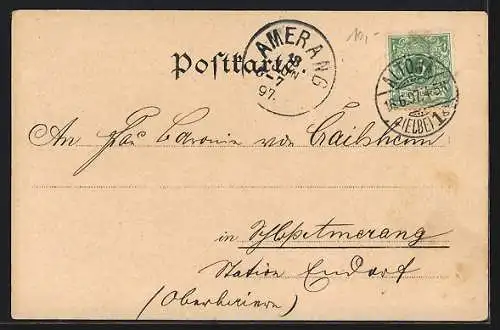 10,-
Postkarte.
AMERANG
97.
ALTONA
(ELBE) 1
An Frau Baronin von Crailsheim
in Schloss Amerang
Station Endorf
(Oberbaiern)